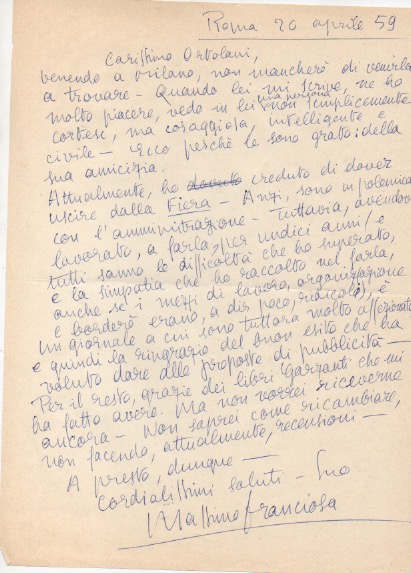 Roma 20 aprile 59
Carissimo Ortolani,
venendo a Milano, non mancherò di venirla
a trovare - Quando lei mi scrive, ne ho
molto piacere, vedo in lei una persona non semplicemente
cortese, ma coraggiosa, intelligente e
civile - Ecco perchè le sono grato: della
sua amicizia.
Attualmente, ho dovuto creduto di dover
uscire dalla Fiera - Anzi, sono in polemica
con l'amministrazione - Tuttavia, avendo
lavorato, a farla, per undici anni (e
tutti sanno le difficoltà che ho superato,
e la simpatia che ho raccolto nel farla,
anche se i mezzi di lavoro, organizzazione
e borderò erano, a dir poco, ridicoli), è
un giornale a cui sono tuttora molto affezionato
e quindi la ringrazio del buon esito che ha
voluto dare alle proposte di pubblicità -
Per il resto, grazie dei libri Garzanti che mi
ha fatto avere. Ma non vorrei riceverne
ancora - Non saprei come ricambiare,
non facendo, attualmente, recensioni -
A presto, dunque -
Cordialissimi saluti - Suo
Massimo Franciosa